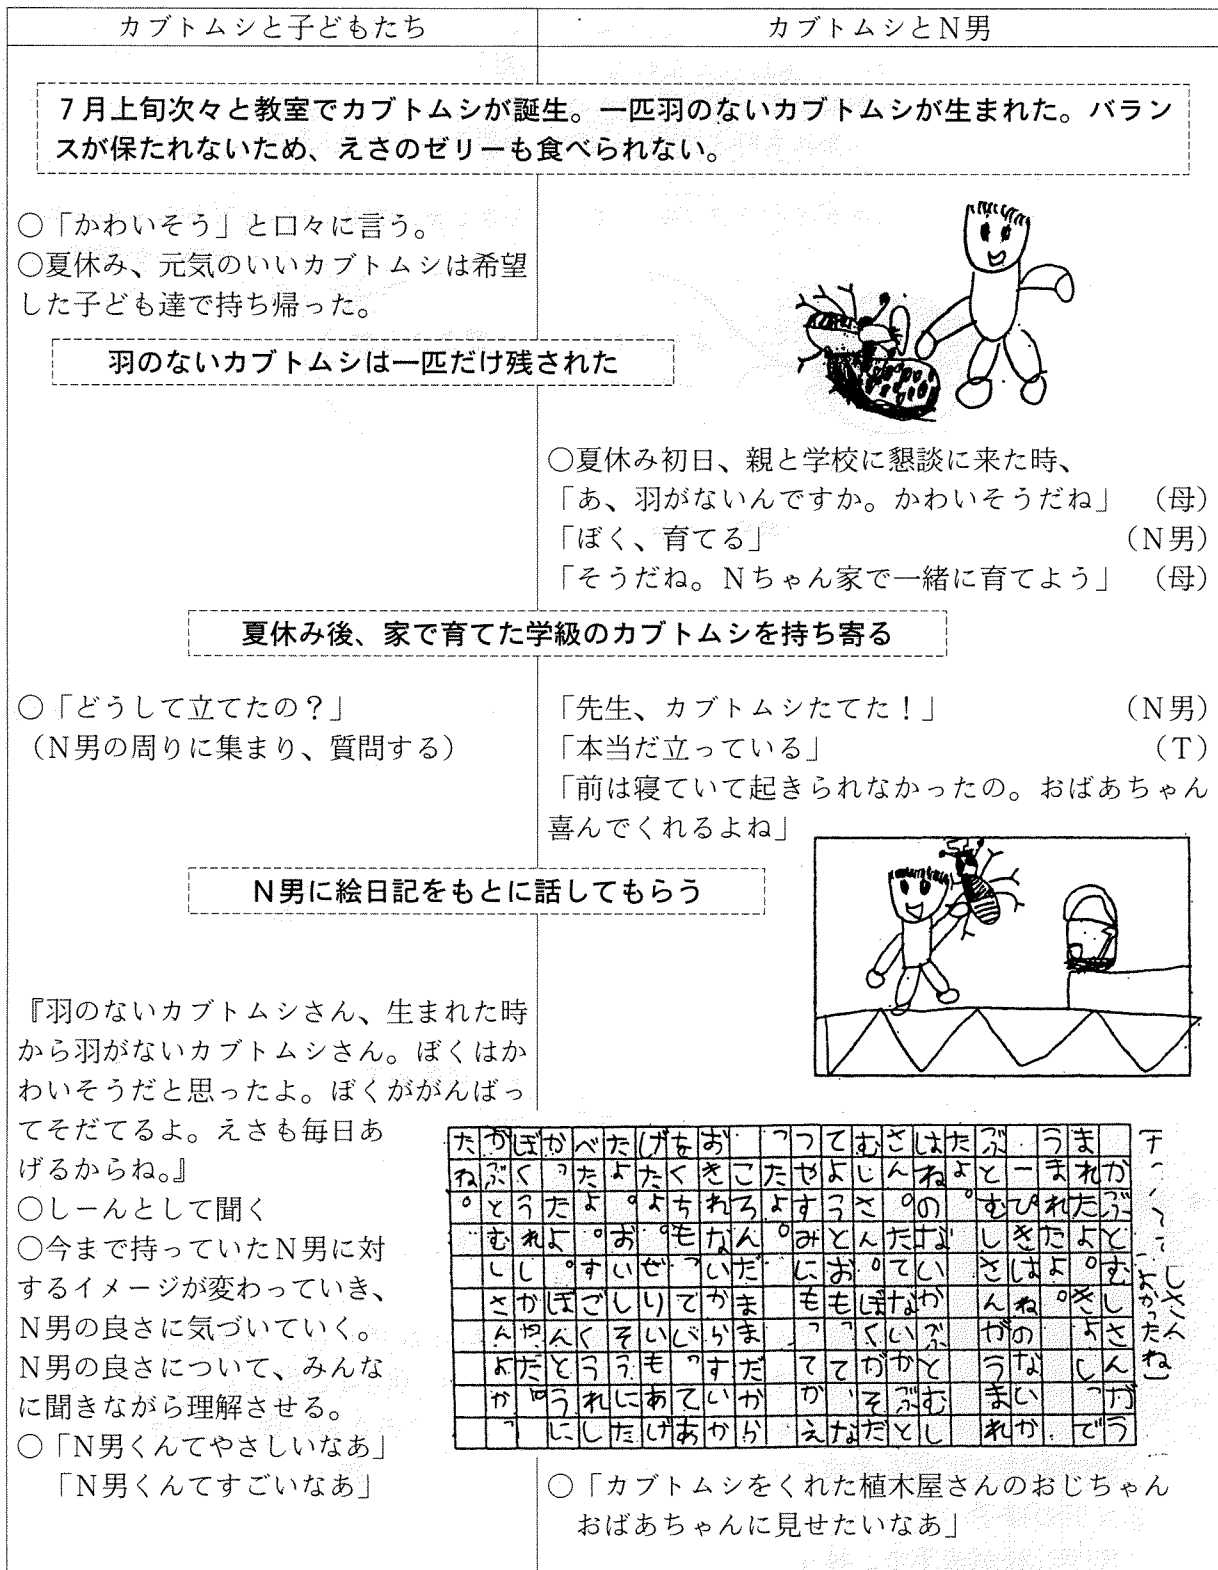 カブトムシと子どもたち
カブトムシとN男
7月上旬次々と教室でカブトムシが誕生。一匹羽のないカブトムシが生まれた。バラン
スが保たれないため、えさのゼリーも食べられない。
○「かわいそう」と口々に言う。
○夏休み、元気のいいカブトムシは希望
した子ども達で持ち帰った。
羽のないカブトムシは一匹だけ残された
○夏休み初日、親と学校に懇談に来た時、
「あ、羽がないんですか。かわいそうだね」 (母)
「ぼく、育てる」 (N男)
「そうだね。Nちゃん家で一緒に育てよう」 (母)
夏休み後、家で育てた学級のカブトムシを持ち寄る
○「どうして立てたの?」
(N男の周りに集まり、質問する)
「先生、カブトムシたてた!」 (N男)
「本当だ立っている」 (T)
「前は寝ていて起きられなかったの。おばあちゃん
喜んでくれるよね」
N男に絵日記をもとに話してもらう
『羽のないカブトムシさん、生まれた時
から羽がないカブトムシさん。ぼくはか
わいそうだと思ったよ。ぼくががんばっ
てそだてるよ。えさも毎日あ
げるからね。』
○しーんとして聞く
○今まで持っていたN男に対
するイメージが変わっていき、
N男の良さに気づいていく。
N男の良さについて、みんな
に聞きながら理解させる。
○「N男くんてやさしいなあ」
「N男くんてすごいなあ」
よかったね
かぶとむしさんがう
ーぴきはねのないか
ぶとむしさんがうまれ
たよ。
はねのないかぶとむし
○「カブトムシをくれた植木屋さんのおじちゃん
おばあちゃんに見せたいなあ」